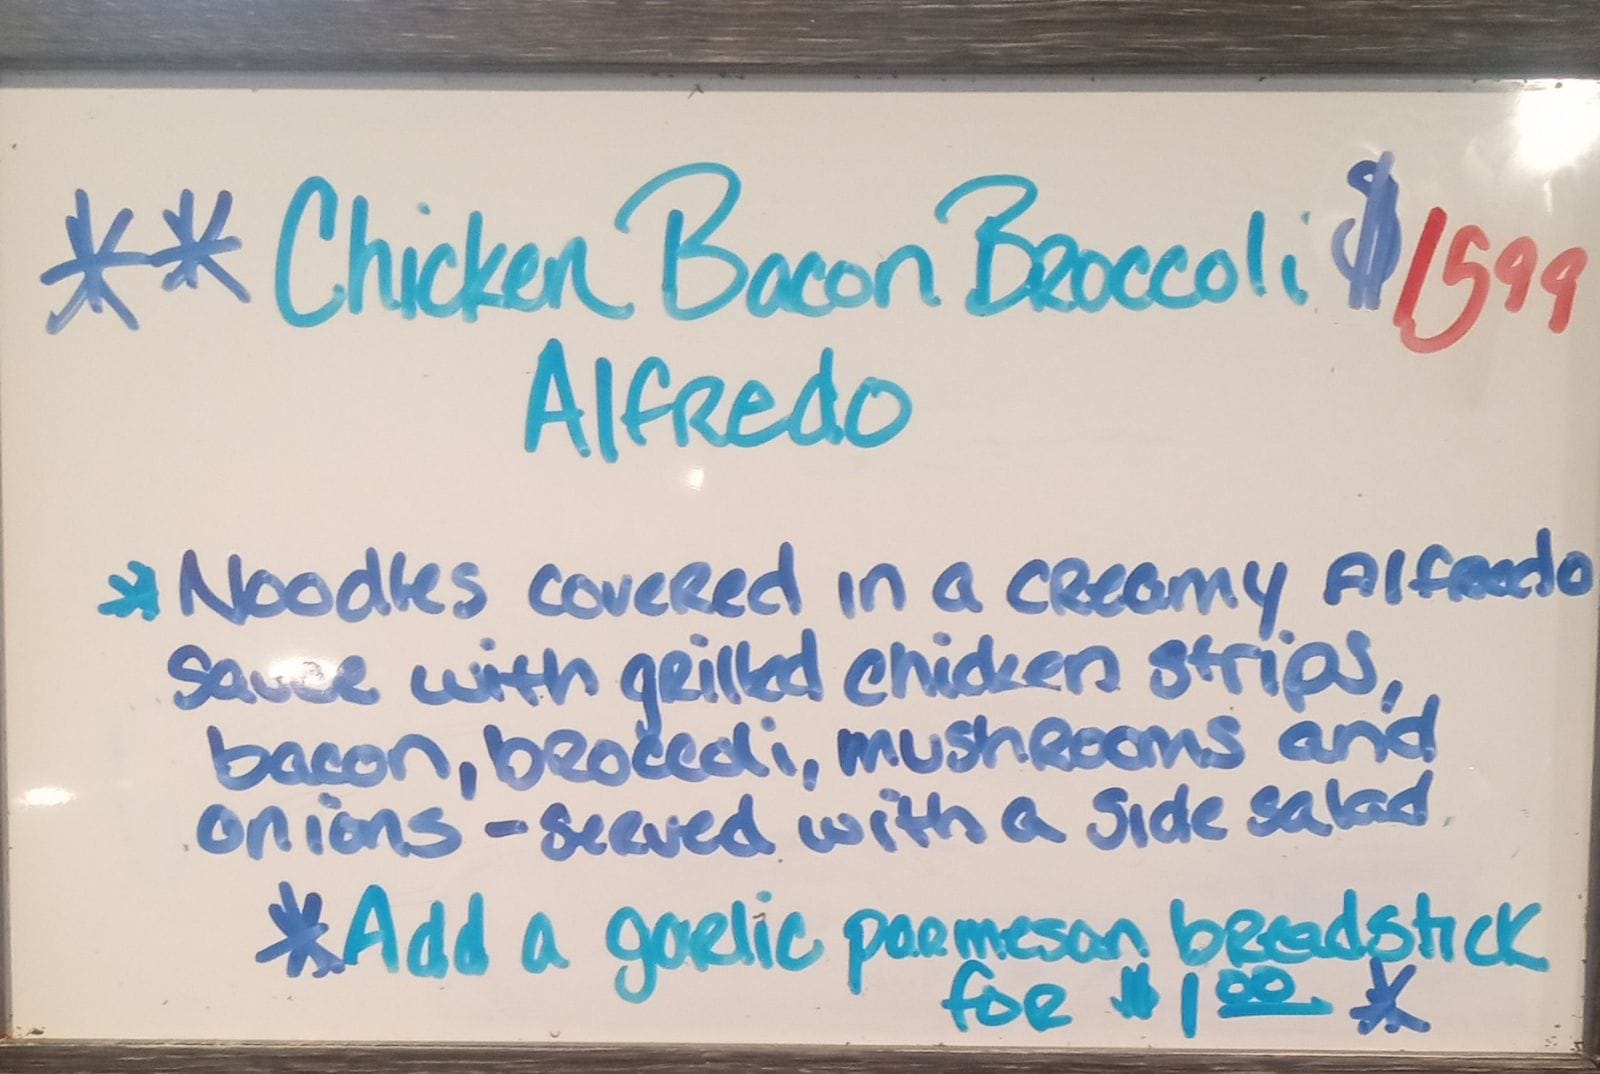 ** Chicken Bacon Broccoli $1599
Alfredo
* Noodles covered in a creamy Alfredo
sauce with grilled chicken strips,
bacon, broccoli, mushrooms and
onions - served with a side salad
* Add a garlic parmesan breadstick
for $1.00 *